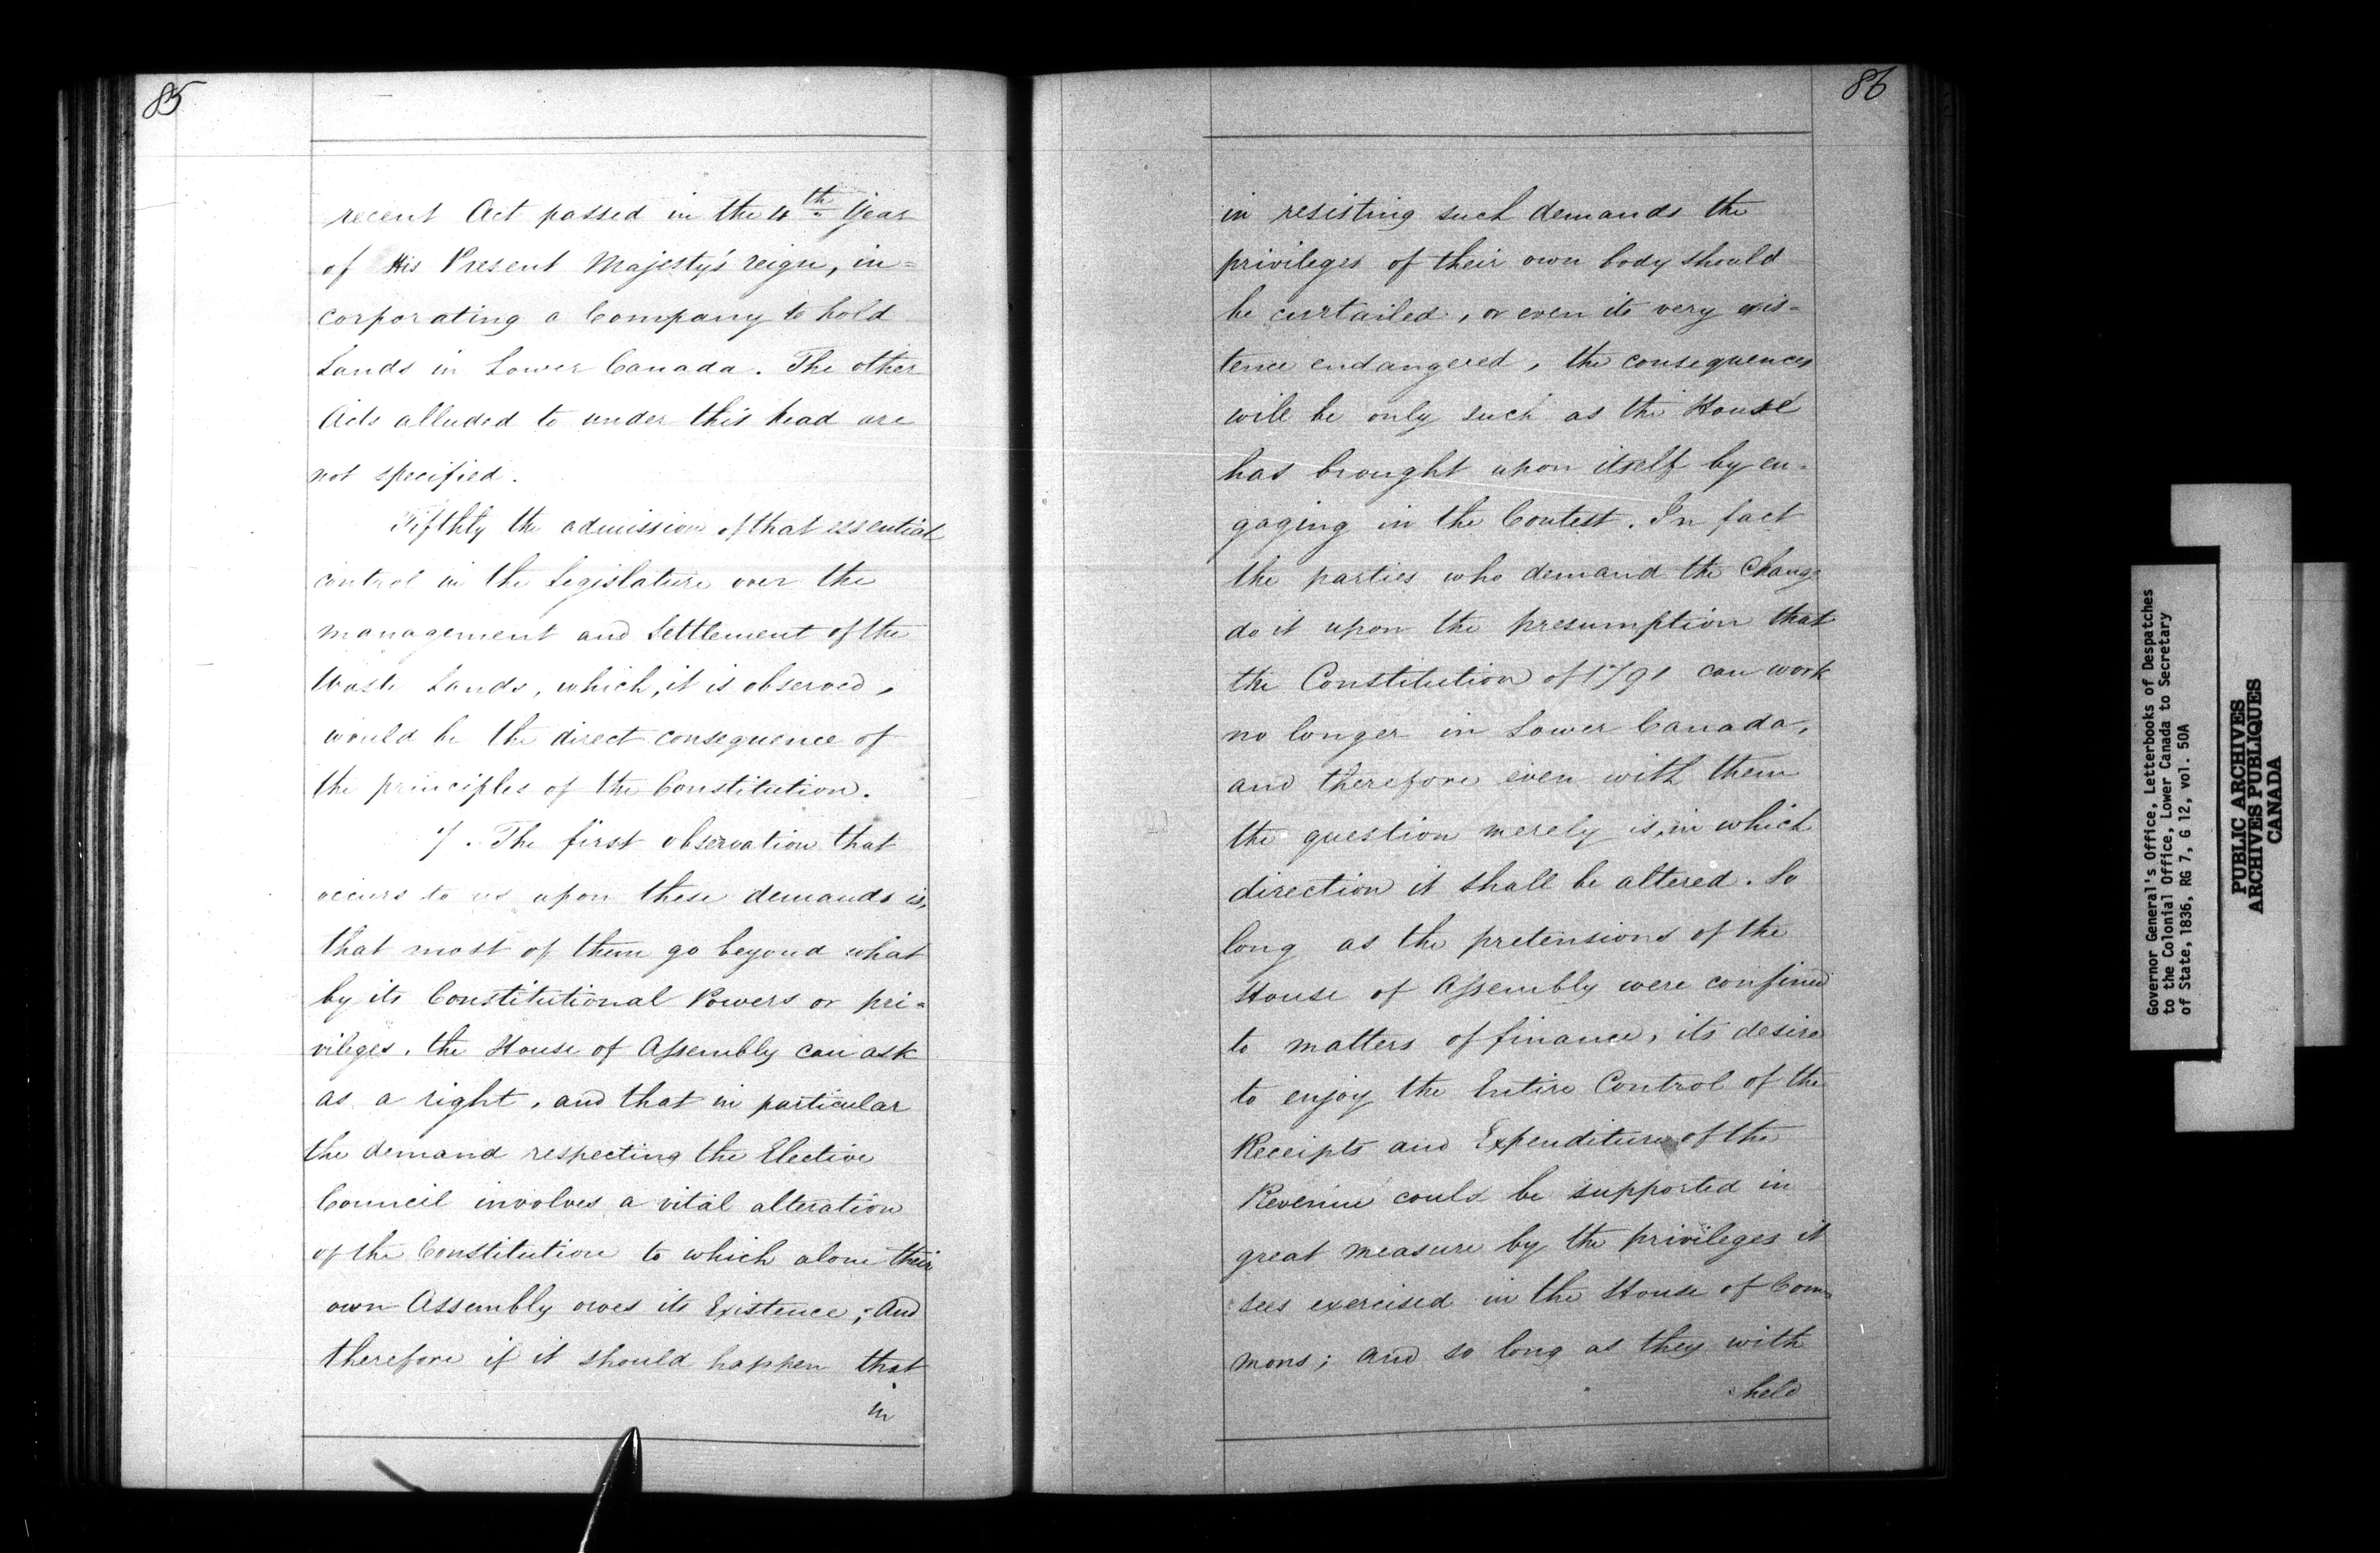 85
recent Act passed in the 4th Year
of His Present Majesty's reign, in=
corporating a Company to hold
Lands in Lower Canada. The other
Acts alluded to under this head are
not specified.
Fifthly the admission of that essential
control in the Legislature over the
management and Settlement of the
Waste Lands, which, it is observed,
would be the direct consequence of
the principles of the Constitution.
7. The first observation that
occurs to us upon these demands is,
that most of them go beyond what
by its Constitutional Powers or pri=
vileges, the House of Assembly can ask
as a right, and that in particular
the demand respecting the Elective
Council involves a vital alteration
of the Constitution to which alone their
own Assembly owes its Existence; And
therefore if it should happen that
in
86
in resisting such demands the
privileges of their own body should
be curtailed, or even its very exis=
tence endangered, the consequences
will be only such as the House
has brought upon itself by en=
gaging in the Contest. In fact
the parties who demand the Change
do it upon the presumption that
the Constitution of 1791 can work
no longer in Lower Canada,
and therefore even with them
the question merely is, in which
direction it shall be altered. So
long as the pretensions of the
House of Assembly were confined
to matters of finance, its desire
to enjoy the Entire Control of the
Receipts and Expenditure of the
Revenue could be supported in
great measure by the privileges it
sees exercised in the House of Com=
mons; and so long as they with
held
Governor General's Office, Letterbooks of Despatches
to the Colonial Office, Lower Canada to Secretary
of State, 1836, RG 7, G 12, vol. 50A
PUBLIC ARCHIVES
ARCHIVES PUBLIQUES
CANADA